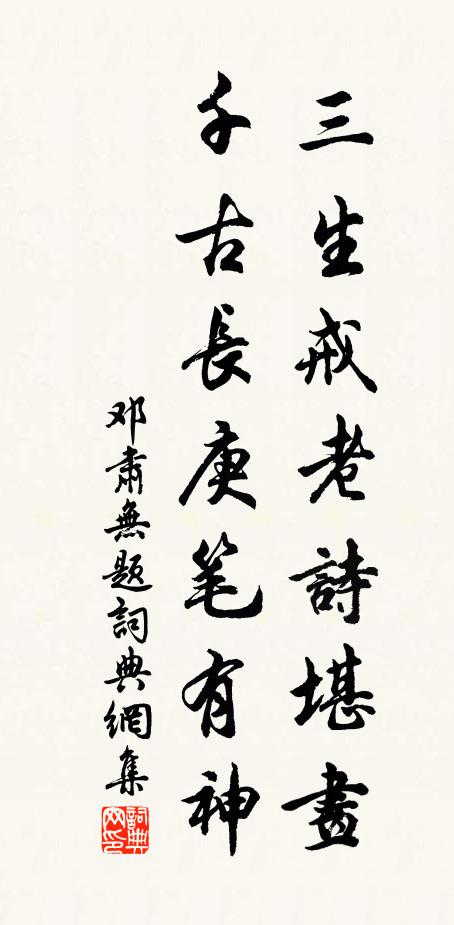 三生戒老詩堪畫
千古長庚笔有神
邓肅無題詞典網集
詞典网印